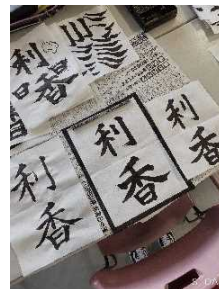 利
香
利
香
利
香
利
香